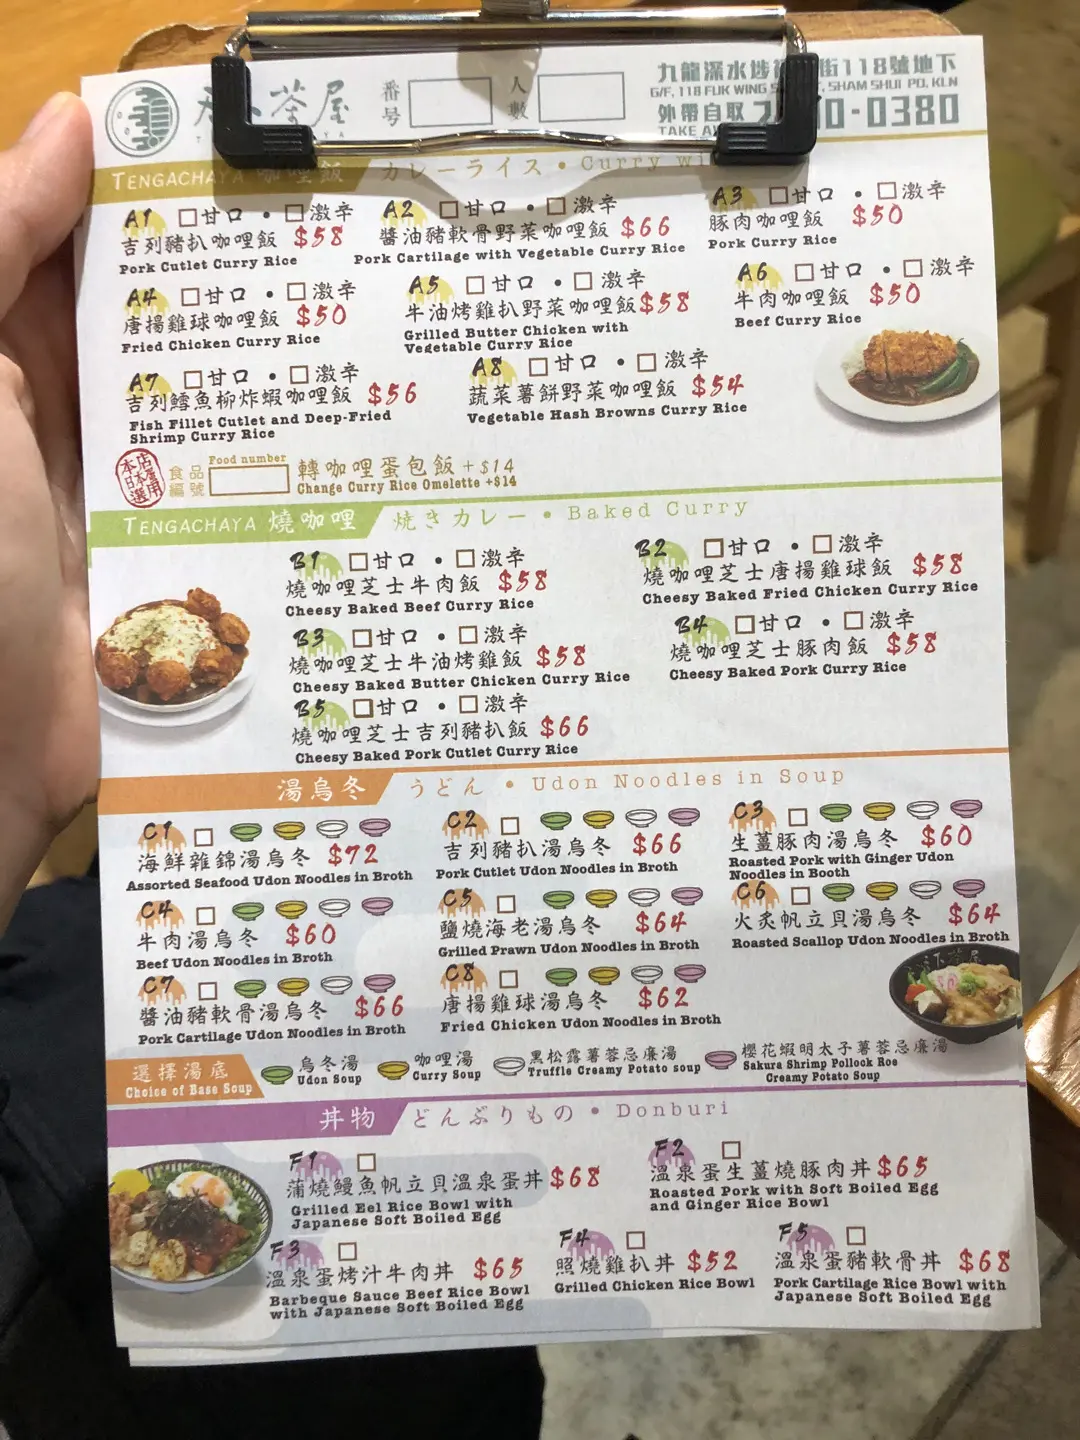 天下茶屋
番号
人數
九龍深水埗 街118號地下
G/F, 118 FUK WING , SHAM SHUI PO, KLN
外帶自取 0-0380
TAKE
TENGACHAYA 咖哩飯 カレーライス • Curry wi
A1 甘口 • 激辛
吉列豬扒咖哩飯 $58
Pork Cutlet Curry Rice
A2 甘口 • 激辛
醬油豬軟骨野菜咖哩飯 $66
Pork Cartilage with Vegetable Curry Rice
A3 甘口 • 激辛
豚肉咖哩飯 $50
Pork Curry Rice
A4 甘口 • 激辛
唐揚雞球咖哩飯 $50
Fried Chicken Curry Rice
A5 甘口 • 激辛
牛油烤雞扒野菜咖哩飯 $58
Grilled Butter Chicken with
Vegetable Curry Rice
A6 甘口 • 激辛
牛肉咖哩飯 $50
Beef Curry Rice
A7 甘口 • 激辛
吉列鱈魚柳炸蝦咖哩飯 $56
Fish Fillet Cutlet and Deep-Fried
Shrimp Curry Rice
A8 甘口 • 激辛
蔬菜薯餅野菜咖哩飯 $54
Vegetable Hash Browns Curry Rice
本店日本產米選用
食品編號
Food number
轉咖哩蛋包飯 +$14
Change Curry Rice Omelette +$14
TENGACHAYA 燒咖哩 焼きカレー • Baked Curry
B1 甘口 • 激辛
燒咖哩芝士牛肉飯 $58
Cheesy Baked Beef Curry Rice
B2 甘口 • 激辛
燒咖哩芝士唐揚雞球飯 $58
Cheesy Baked Fried Chicken Curry Rice
B3 甘口 • 激辛
燒咖哩芝士牛油烤雞飯 $58
Cheesy Baked Butter Chicken Curry Rice
B4 甘口 • 激辛
燒咖哩芝士豚肉飯 $58
Cheesy Baked Pork Curry Rice
B5 甘口 • 激辛
燒咖哩芝士吉列豬扒飯 $66
Cheesy Baked Pork Cutlet Curry Rice
湯烏冬 うどん • Udon Noodles in Soup
C1
海鮮雜錦湯烏冬 $72
Assorted Seafood Udon Noodles in Broth
C2
吉列豬扒湯烏冬 $66
Pork Cutlet Udon Noodles in Broth
C3
生薑豚肉湯烏冬 $60
Roasted Pork with Ginger Udon
Noodles in Booth
C4
牛肉湯烏冬 $60
Beef Udon Noodles in Broth
C5
鹽燒海老湯烏冬 $64
Grilled Prawn Udon Noodles in Broth
C6
火炙帆立貝湯烏冬 $64
Roasted Scallop Udon Noodles in Broth
C7
醬油豬軟骨湯烏冬 $66
Pork Cartilage Udon Noodles in Broth
C8
唐揚雞球湯烏冬 $62
Fried Chicken Udon Noodles in Broth
選擇湯底
Choice of Base Soup
烏冬湯
Udon Soup
咖哩湯
Curry Soup
黑松露薯蓉忌廉湯
Truffle Creamy Potato soup
櫻花蝦明太子薯蓉忌廉湯
Sakura Shrimp Pollock Roe
Creamy Potato Soup
丼物 どんぶりもの • Donburi
F1
蒲燒鰻魚帆立貝溫泉蛋丼 $68
Grilled Eel Rice Bowl with
Japanese Soft Boiled Egg
F2
溫泉蛋生薑燒豚肉丼 $65
Roasted Pork with Soft Boiled Egg
and Ginger Rice Bowl
F3
溫泉蛋烤汁牛肉丼 $65
Barbeque Sauce Beef Rice Bowl
with Japanese Soft Boiled Egg
F4
照燒雞扒丼 $52
Grilled Chicken Rice Bowl
F5
溫泉蛋豬軟骨丼 $68
Pork Cartilage Rice Bowl with
Japanese Soft Boiled Egg